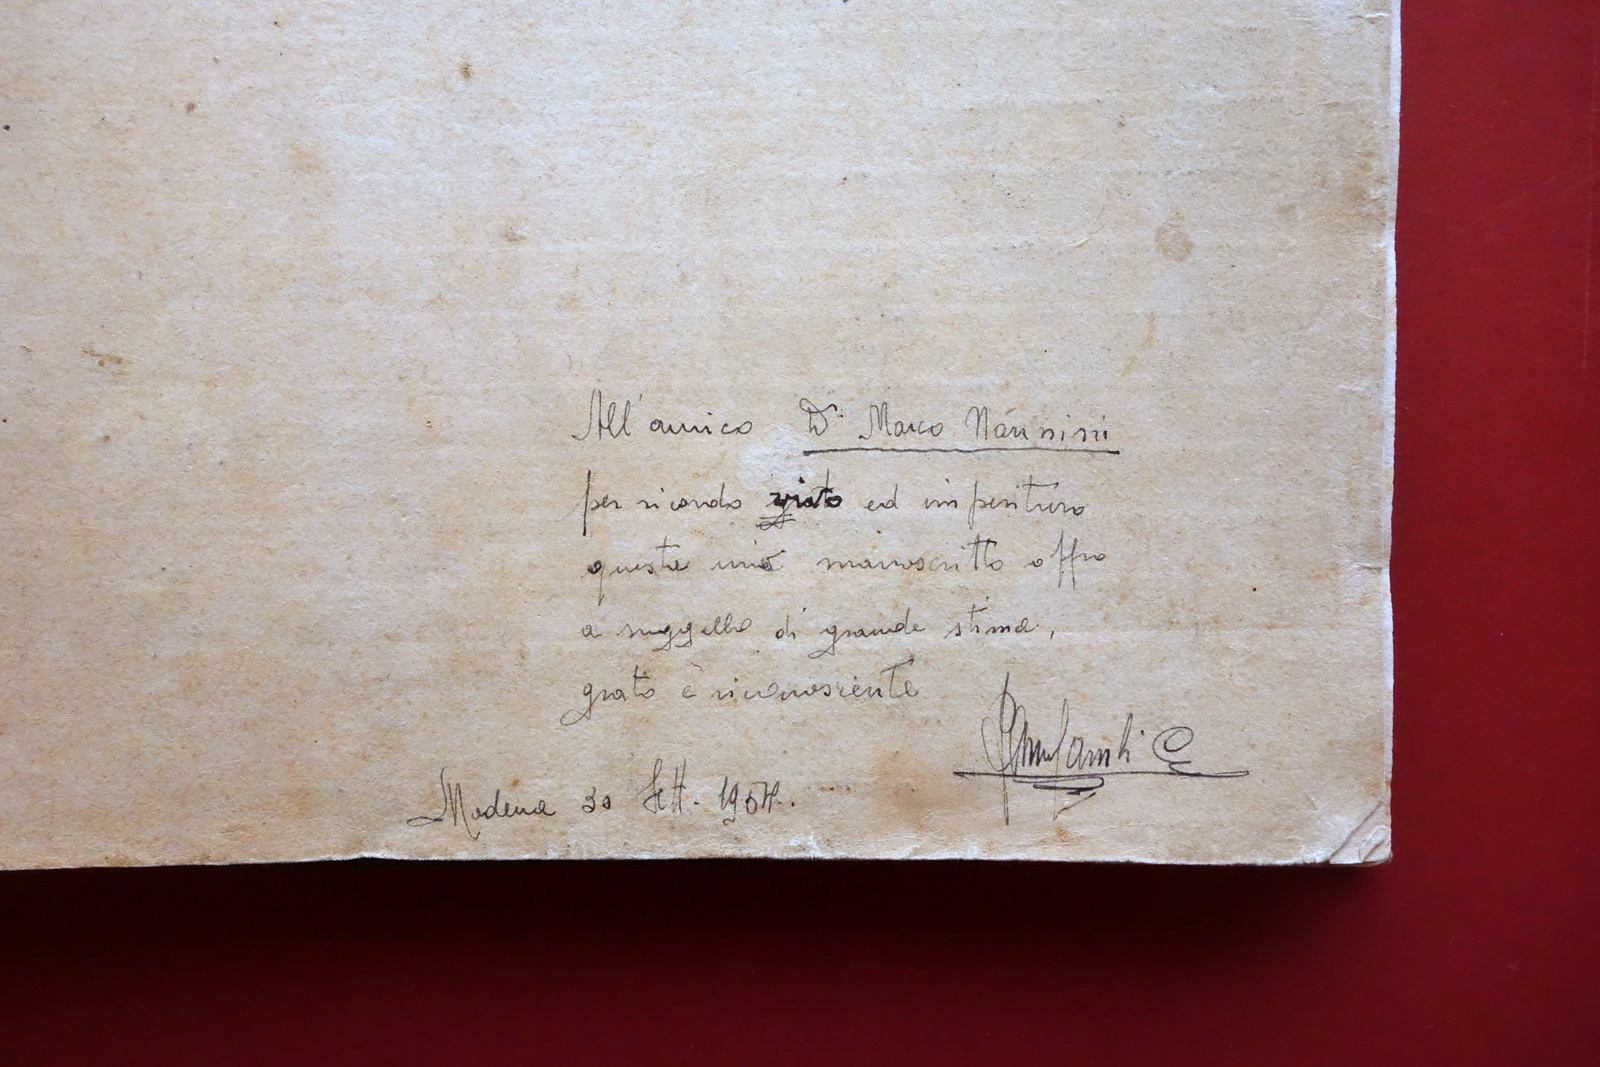 All'amico Dr. Marco Nannini
per ricordo grato ed imperituro
questo mio manoscritto offro
a suggello di grande stima,
grato e riconoscente
Modena 30 Sett.